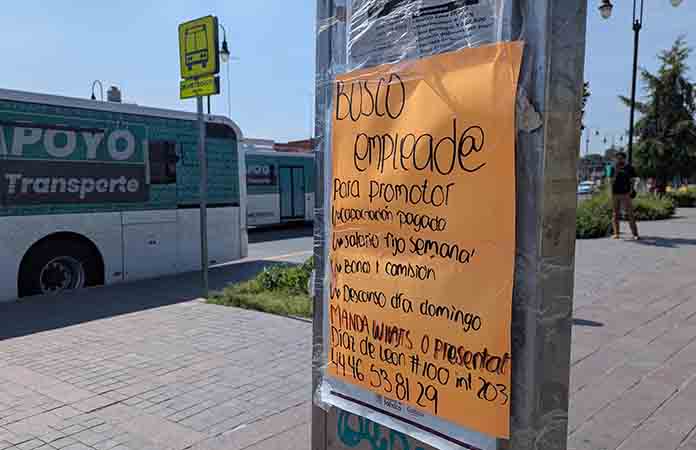 APOYO
Transporte
BUSCO
emplead@
Para promotor
capacitación pagada
Salario fijo semanal
Bono y comisión
Descanso día domingo
MANDA WHATS O presentat
Díaz de León #100 int 203
44 46 53 81 29